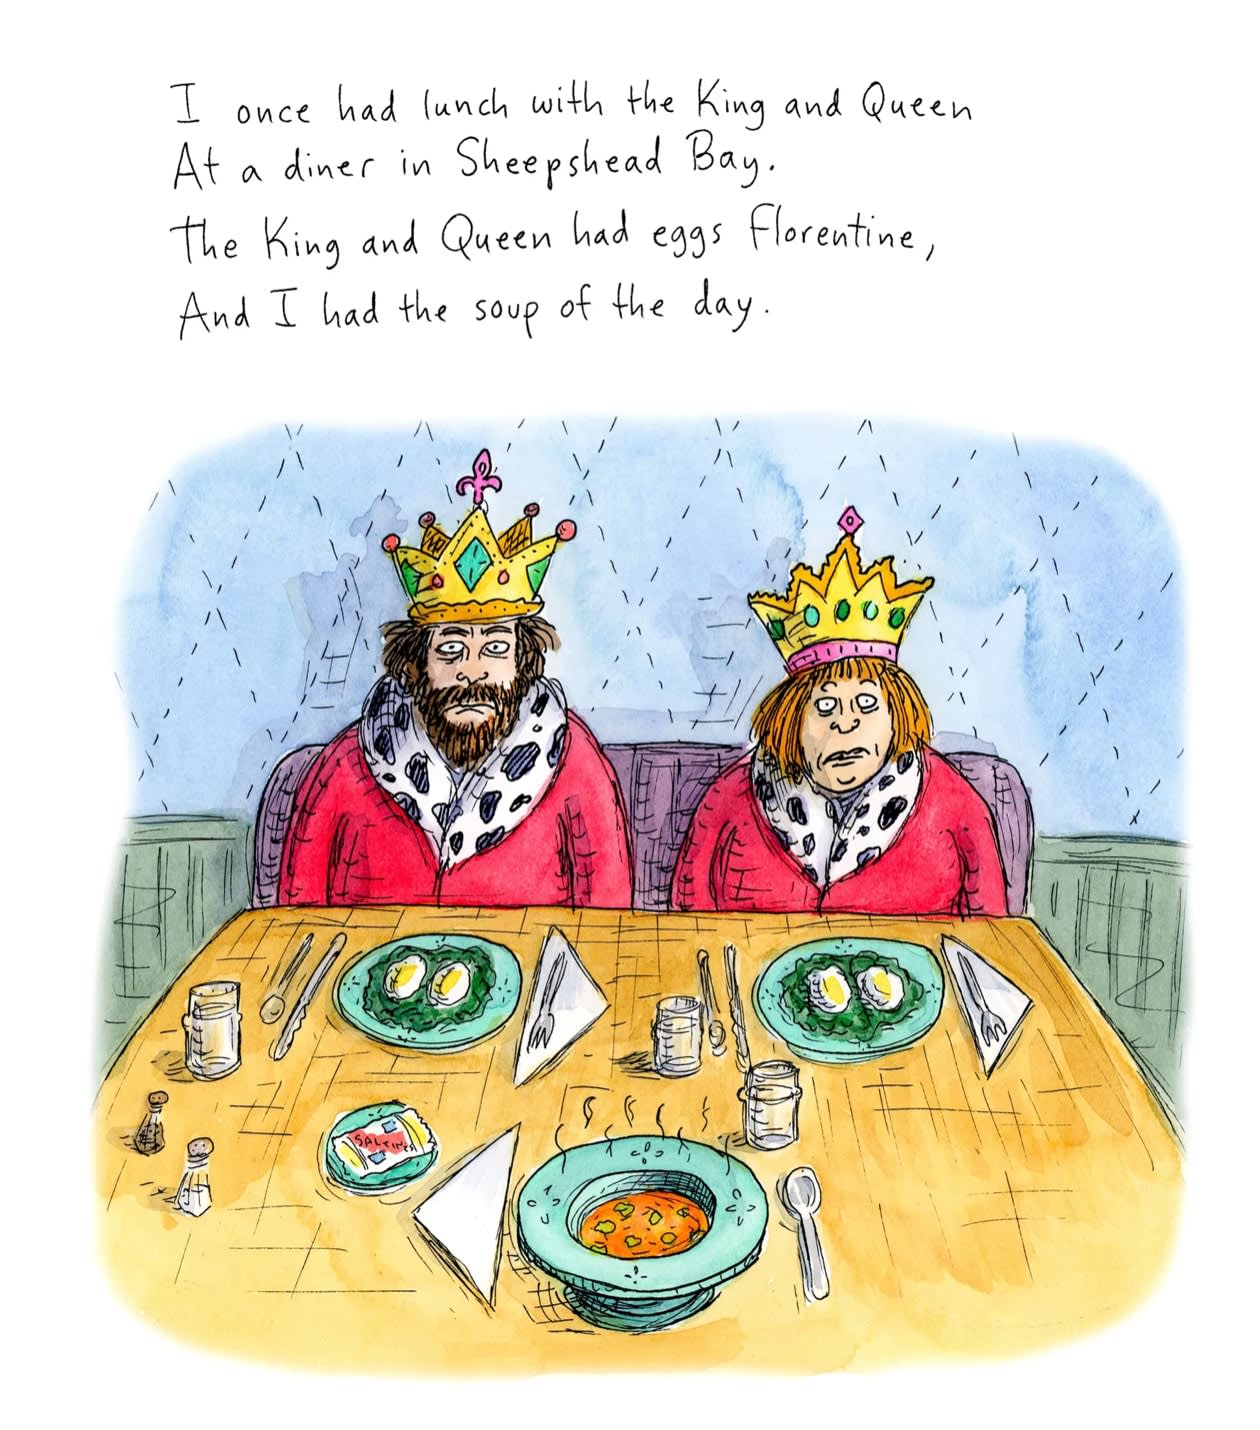 I once had lunch with the King and Queen
At a diner in Sheepshead Bay.
The King and Queen had eggs Florentine,
And I had the soup of the day.
SALTINES